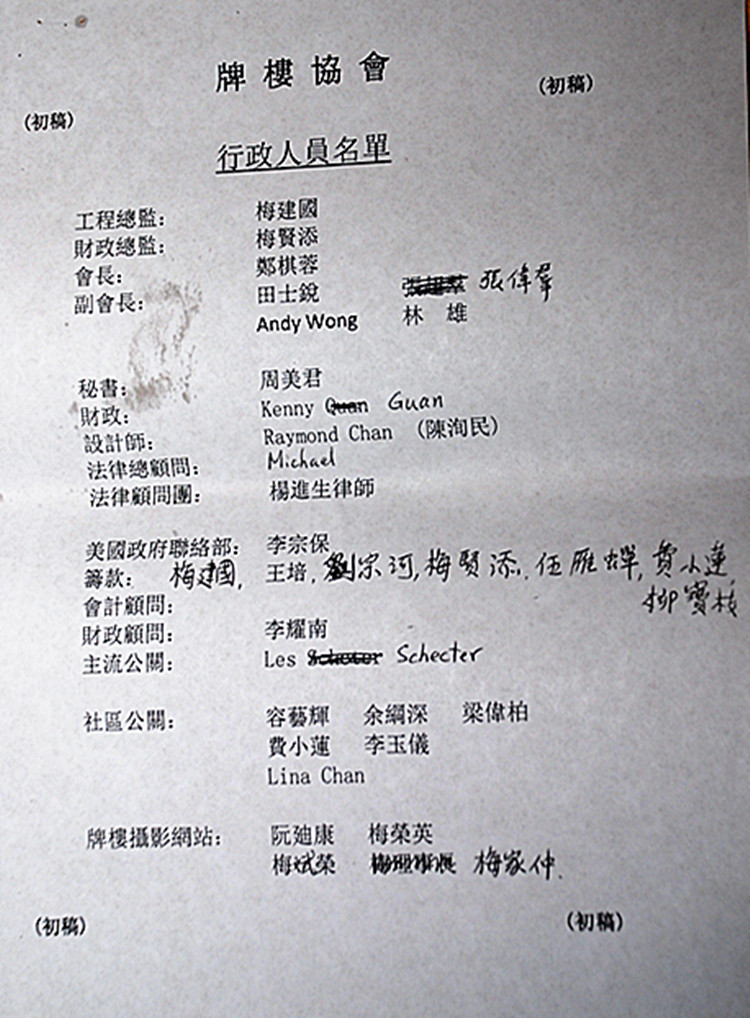 牌樓協會
(初稿) (初稿)
行政人員名單
工程總監: 梅建國
財政總監: 梅賢添
會長: 鄭棋蓉
副會長: 田士銳 張偉羣
Andy Wong 林 雄
秘書: 周美君
財政: Kenny Quan Guan
設計師: Raymond Chan (陳洵民)
法律總顧問: Michael
法律顧問團: 楊進生律師
美國政府聯絡部: 李宗保
籌款: 梅建國, 王培, 劉宗河, 梅賢添, 伍雁嬋, 費小蓮,
柳寶枝
會計顧問:
財政顧問: 李耀南
主流公關: Les Schecter
社區公關: 容藝輝 余綱深 梁偉柏
費小蓮 李玉儀
Lina Chan
牌樓攝影網站: 阮廸康 梅榮英
梅斌榮 梅家仲
(初稿) (初稿)